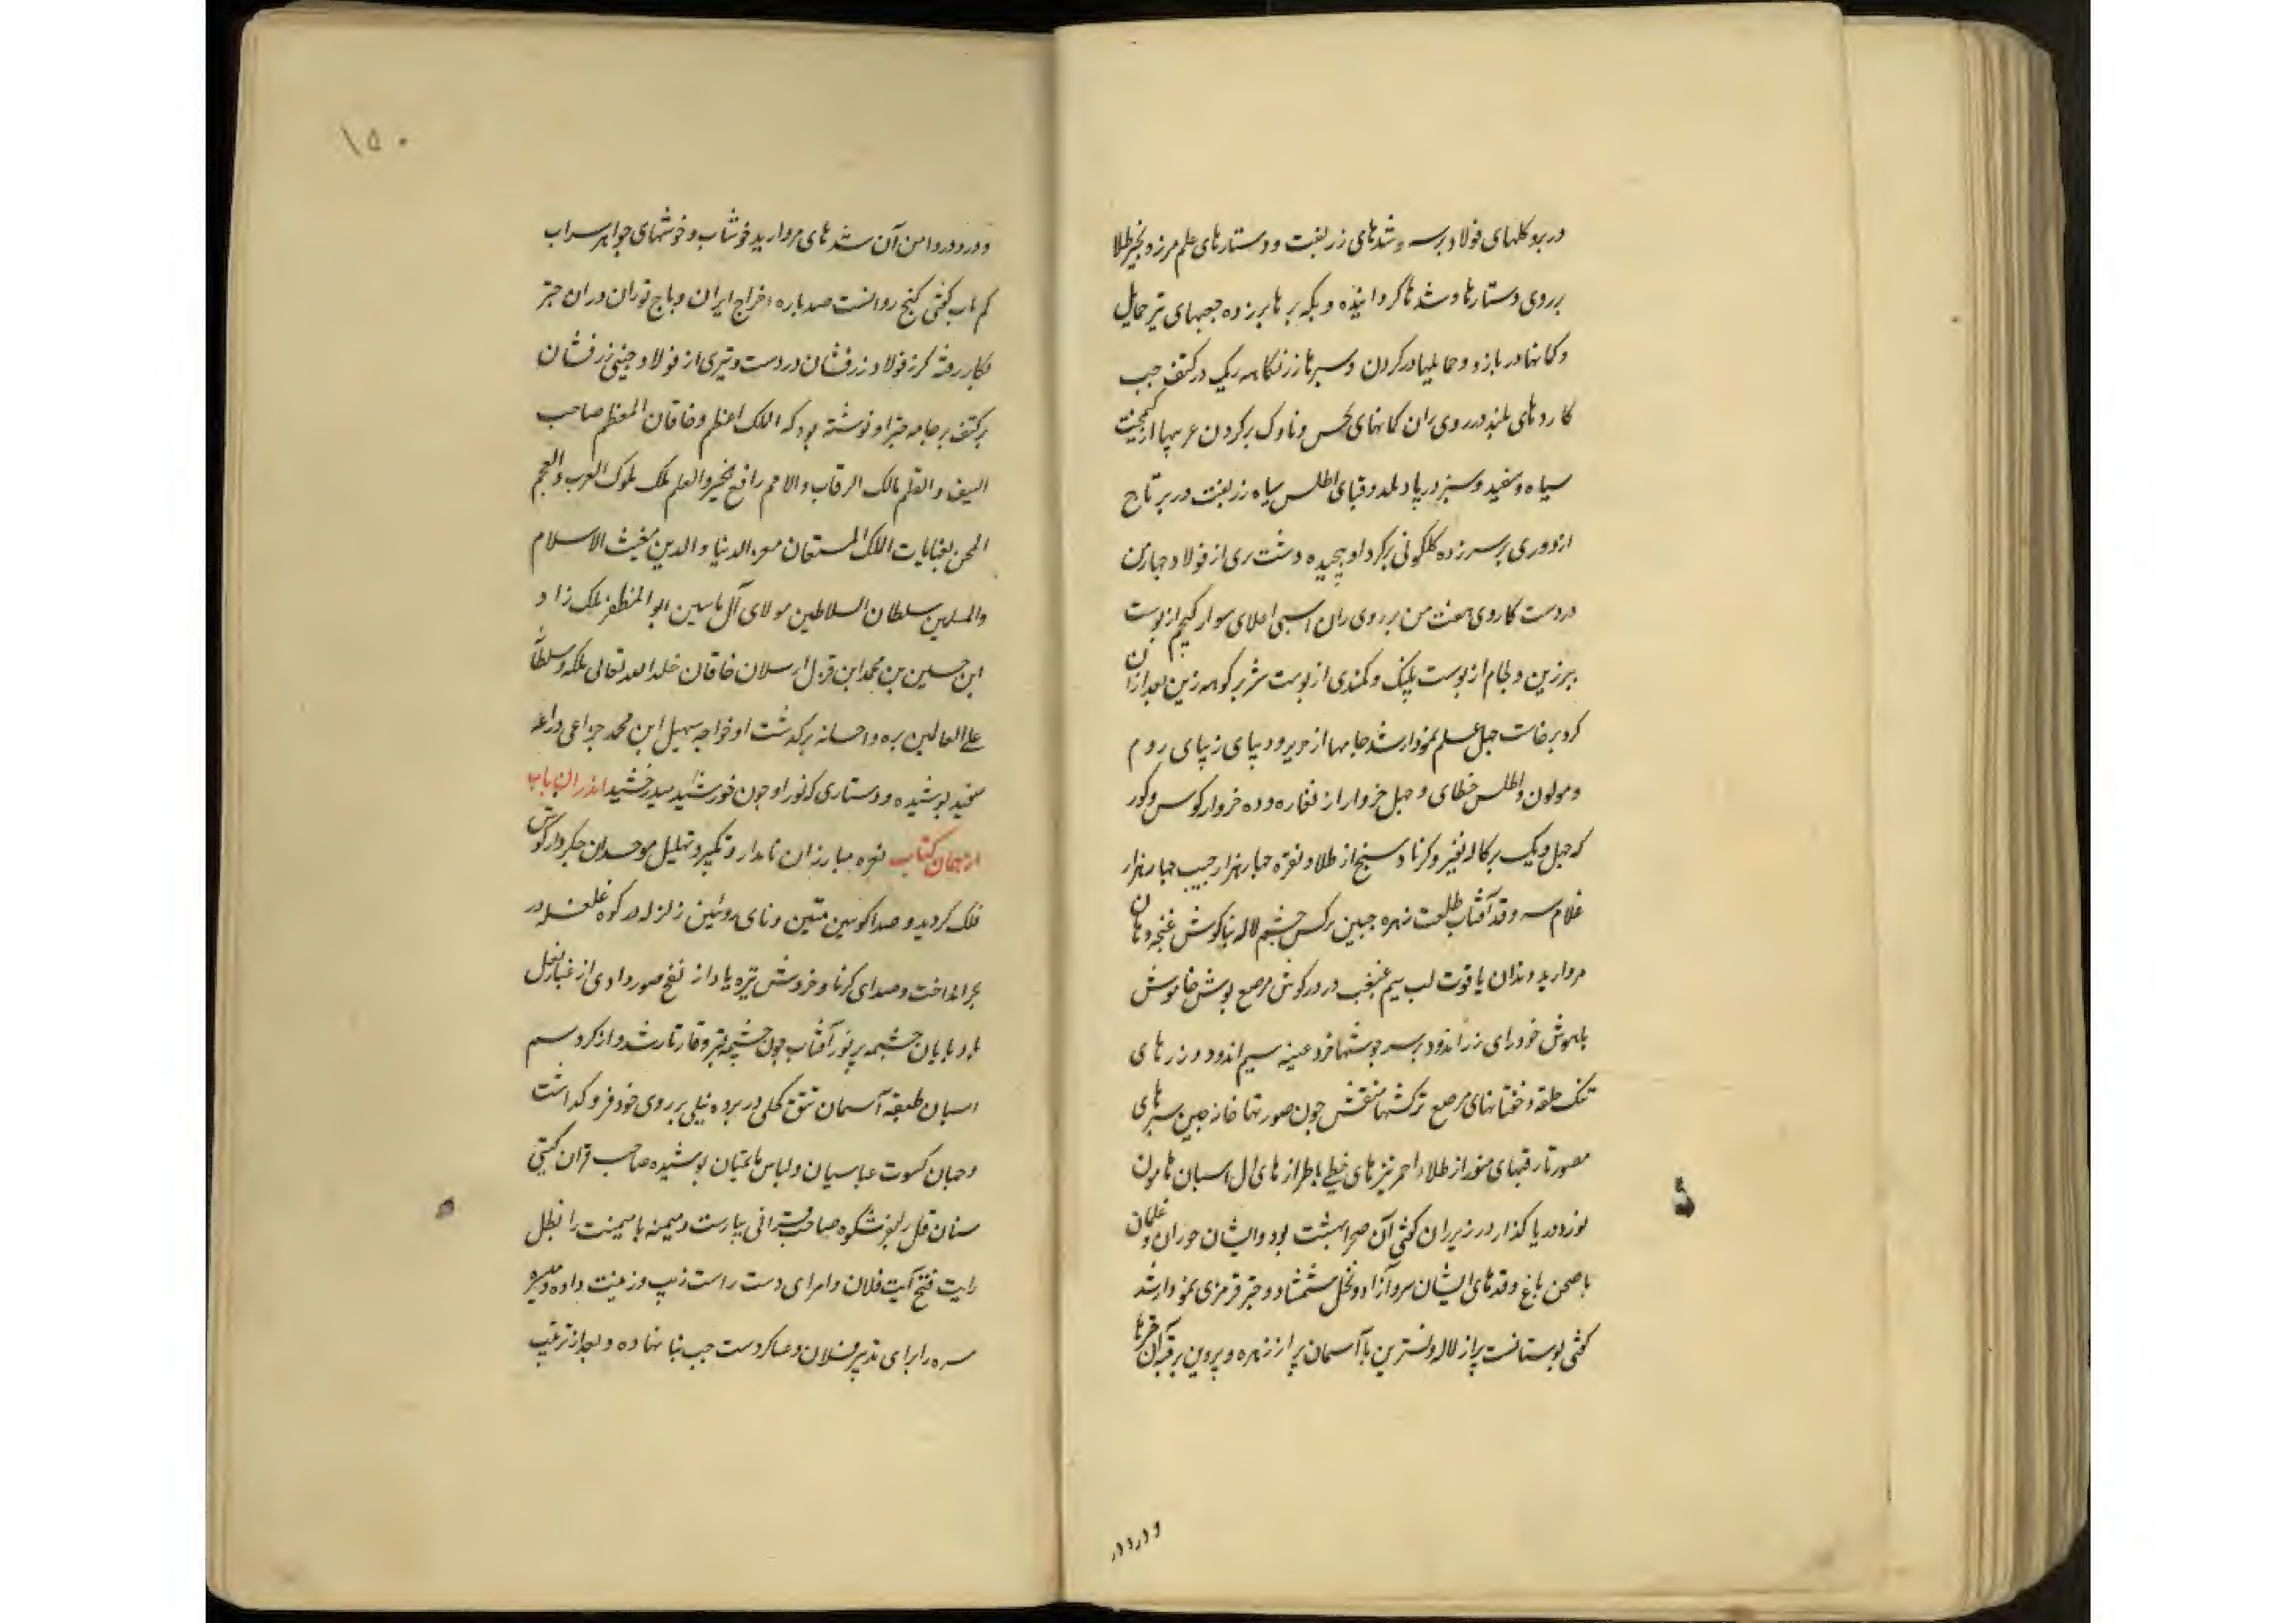 در بر و کلهای فولاد بر سر و شدهای زربفت و دستارهای علم مرزه بخیر طلا
بر روی دستارها و شدها کردانیده و یکه پرها بر زده جعبهای تیر حمایل
و کمانها در بازو و حمایلها در کردن و سپرها زرنکار هر یک در کتف چپ
کاردهای بلند در روی ران کمانهای و ناوک بر کردن
سیاه و سفید و سبز در پا و قبای اطلس سیاه زربفت در بر تاج
از دوری بر سر زده کلکونی بر کرد او پیچیده و شش پری از فولاد جبار من
در دست کاردی هفت من بر روی ران اسبی سوار کجیم از پوست
ببر زین و لجام از پوست پلنک و کمندی از پوست شیر بر کوهه زین بعد از آن
کرد برخاست چهل علم نمودار شد جامها از حریر و دیبای زیبای روم
و اطلس خطای و چهل خروار از نقاره و ده خروار کوس و کور
که چهل و یک برکاله نفیر و کرنا و سنج از طلا و نقره چهار هزار جیب چهار هزار
غلام سرو قد آفتاب طلعت زهره جبین نرکس چشم لاله بناکوش غنچه دهان
مروارید دندان یاقوت لب سیم غبغب در در کوش مرصع پوش خاموش
باهوش خودرای زراندود بر سر جوشنها سیم اندود و زرهای
تنک حلقه و خفتانهای مرصع ترکشها منقش چون صورتها خانه چین سپرهای
مصور تارقبهای منور از طلاء احمر نیزهای خطی با طرازهای ال اسبان هامون
نورد دریا کذار در زیر ران کفتی آن صحرا بهشت بود و ایشان حوران و غلمان
با صحن باغ و قدهای ایشان سرو آزاد و نخل شمشاد و چتر قرمزی نمودار شد
کفتی بوستانست پر از لاله و نسترین یا آسمان پر از زهره و پروین بر قبه آن
۱۵۰
و در دور دامن آن شدهای مروارید خوشاب و خوشهای جواهر سراب
کم یاب کفتی کنج روانست صد باره خراج ایران و باج توران در آن چتر
بکار رفته کرز فولاد زرفشان در دست و تبری از فولاد چینی زرفشان
بر کتف بر جامه چتر او نوشته بود که الملک اعظم و خاقان المعظم صاحب
السیف و القلم مالک الرقاب و الامم رافع الخیر و العلم ملک ملوک العرب و العجم
بعنایات الملک المستعان معز الدنیا و الدین مغیث الاسلام
والمسلمین سلطان السلاطین مولای آل یاسین ابو المظفر ملک زاد
ابن حسین بن محمد ابن قزل ارسلان خاقان خلد الله تعالی ملکه و سلطانه
علی العالمین بره و احسانه برکذشت او خواجه سهیل ابن محمد خزاعی دراعه
سفید پوشیده و دستاری که نور او چون خورشید میدرخشید اندر ان باب
از همان کتاب نعره مبارزان نامدار و تکبیر و تهلیل موحدان جکردار کوش
فلک کردید و صدا کوسین متین و نای روئین زلزله در کوه غلغله در
بحر انداخت و صدای کرنا و خروش تیره یاد از نفخ صور دادی از غبار نعل
باد پایان چشمه پر نور آفتاب چون چشمه قیر و قار تار شد و از کرد سم
اسبان طبقه آسمان تتق کحلی در پرده نیلی بر روی خود فرو کذاشت
و جهان کسوت عباسیان و لباس پوشیده صاحب قران کیتی
ستان قلب لفر شکوه صاحب قرانی بیاراست و میمنه با میمنت را بظل
رایت فتح آیت فلان و امرای دست راست زیب و زینت داده و میسره
میسره را برای تدبیر فلان و عساکر دست چپ بنا نهاده و بعد از ترتیب